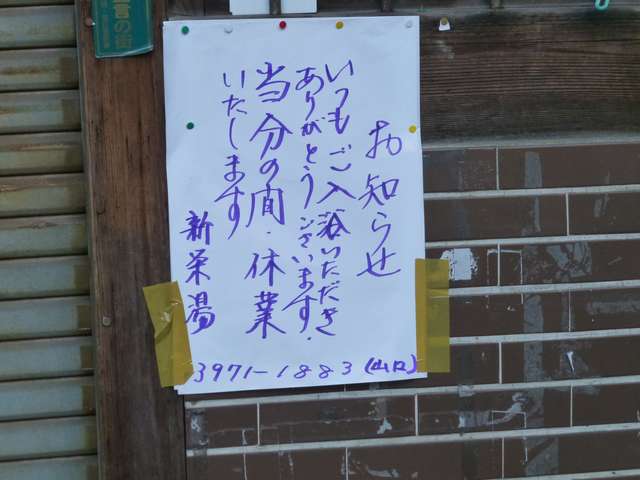 お知らせ
いつもご入浴いただき
ありがとうございます.
当分の間.休業
いたします
新栄湯
3971-1883(山口)